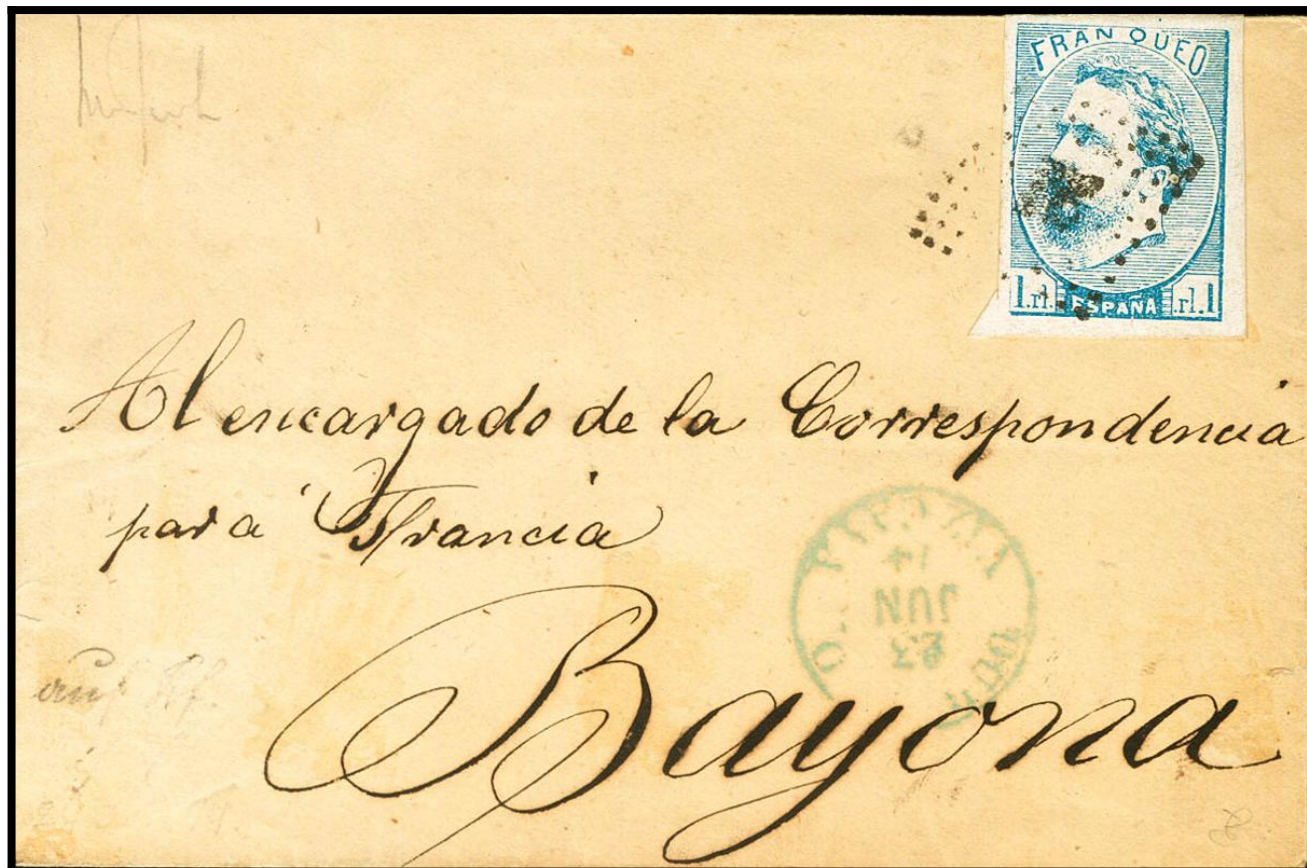 FRANQUEO
1.rl. ESPAÑA .rl.1
Al encargado de la Correspondencia
para Francia
Bayona
23
JUN